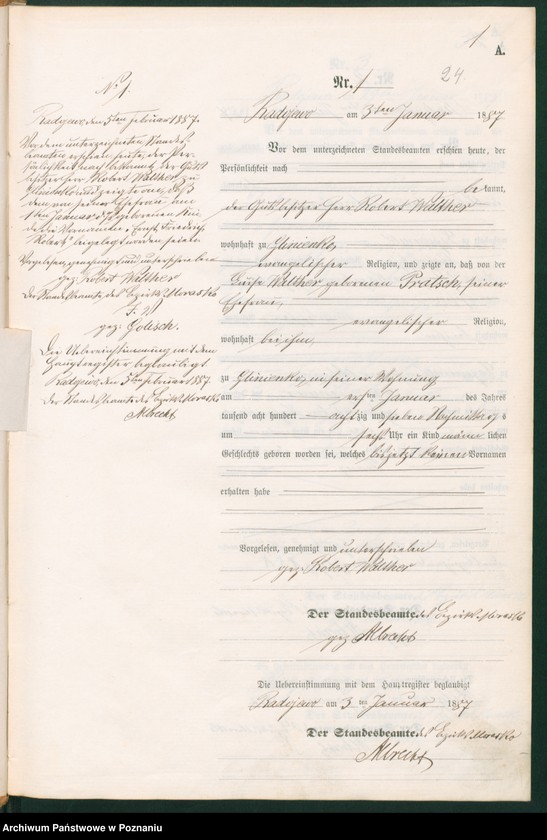 1
A.
24
Nr. 1
Radojewo am 3ten Januar 1887
Vor dem unterzeichneten Standesbeamten erschien heute, der
Persönlichkeit nach
bekannt,
der Gutsbesitzer Herr Robert Walther
wohnhaft zu Glinienko,
evangelischer Religion, und zeigte an, daß von der
Luise Walther gebornen Pratsch, seiner
Ehefrau,
evangelischer Religion,
wohnhaft bei ihm,
zu Glinienko, in seiner Wohnung
am ersten Januar des Jahres
tausend acht hundert achtzig und sieben Nachmittags
um sechs Uhr ein Kind männlichen
Geschlechts geboren worden sei, welches bis jetzt keinen Vornamen
erhalten habe
Vorgelesen, genehmigt und unterschrieben
gez. Robert Walther
Der Standesbeamte des Bezirks Morasko
gez Albrecht
Die Uebereinstimmung mit dem Hauptregister beglaubigt
Radojewo am 3ten Januar 1887
Der Standesbeamte des Bezirks Morasko
Albrecht
No 1.
Radojewo, den 5ten Februar 1887.
Vor dem unterzeichneten Standes-
beamten erschien heute, der Per-
sönlichkeit nach bekannt, der Guts-
besitzer Herr Robert Walther zu
Glinienko und zeigte an, daß
dem von seiner Ehefrau am
1ten Januar d. J. geborenen Kin-
de die Vornamen "Ernst Friedrich
Robert" beigelegt worden seien
Vorgelesen, genehmigt und unterschrieben
gez. Robert Walther
Der Standesbeamte des Bezirks Morasko
gez.
Die Uebereinstimmung mit dem
Hauptregister beglaubigt.
Radojewo, den 5ten Februar 1887.
Der Standesbeamte des Bezirks Morasko
Albrecht
Archiwum Państwowe w Poznaniu